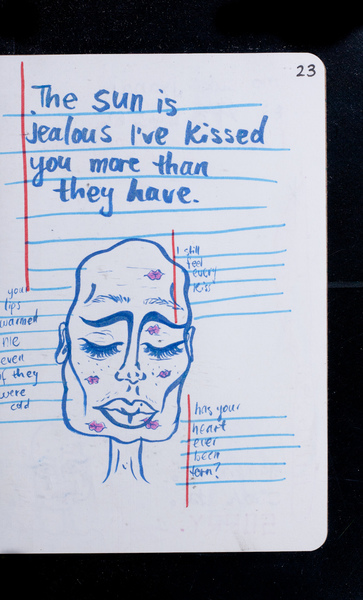 23
The sun is
jealous I've kissed
you more than
they have.
I still
feel
every
kiss
your
lips
warmed
me
even
if they
were
cold
has your
heart
ever
been
torn?